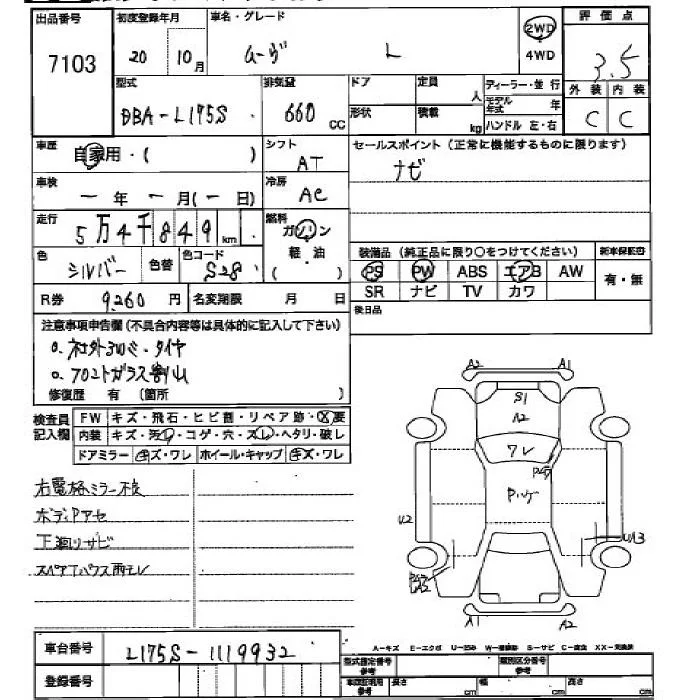 出品番号 初度登録年月 車名・グレード 評価点
7103 20 10月 ムーヴ L 2WD 4WD 3.5
型式 排気量 ドア 定員 人 ディーラー・並行 外装 内装
DBA-L175S 660 CC 形状 積載 kg モデル年式 年 ハンドル 左・右 C C
車歴 自家用・( ) シフト AT セールスポイント (正常に機能するものに限ります)
車検 ー年ー月(ー日) 冷房 AC ナビ
走行 5万4千849km 燃料 ガソリン 軽・油 ( )
色 シルバー 色替 色コード S28 装備品 (純正品に限り○をつけてください) 新車保証書
PS PW ABS エアB AW 有・無
SR ナビ TV カワ
R券 9,260円 名変期限 月 日 後日品
注意事項申告欄 (不具合内容等は具体的に記入して下さい)
o.社外アルミ・タイヤ
o.フロントガラス割レ
修復歴 有 (箇所 )
検査員記入欄 FW キズ・飛石・ヒビ割・リペア跡・X要
内装 キズ・汚レ・コゲ・穴・スレ・ヘタリ・破レ
ドアミラー キズ・ワレ ホイール・キャップ キズ・ワレ
右電格ミラー不良
ボディPアセ
下廻りサビ
スペアTハウス雨モレ
A2 A1
S1
A2
ワレ
U2 U A3
A1 A2
車台番号 L175S-1119932
登録番号
A-キズ E-エクボ U-凹み W-補修跡 S-サビ C-腐食 XX-交換済
型式指定番号 参考 類別区分番号 参考
車庫証明用 参考 長さ cm 幅 cm 高さ cm